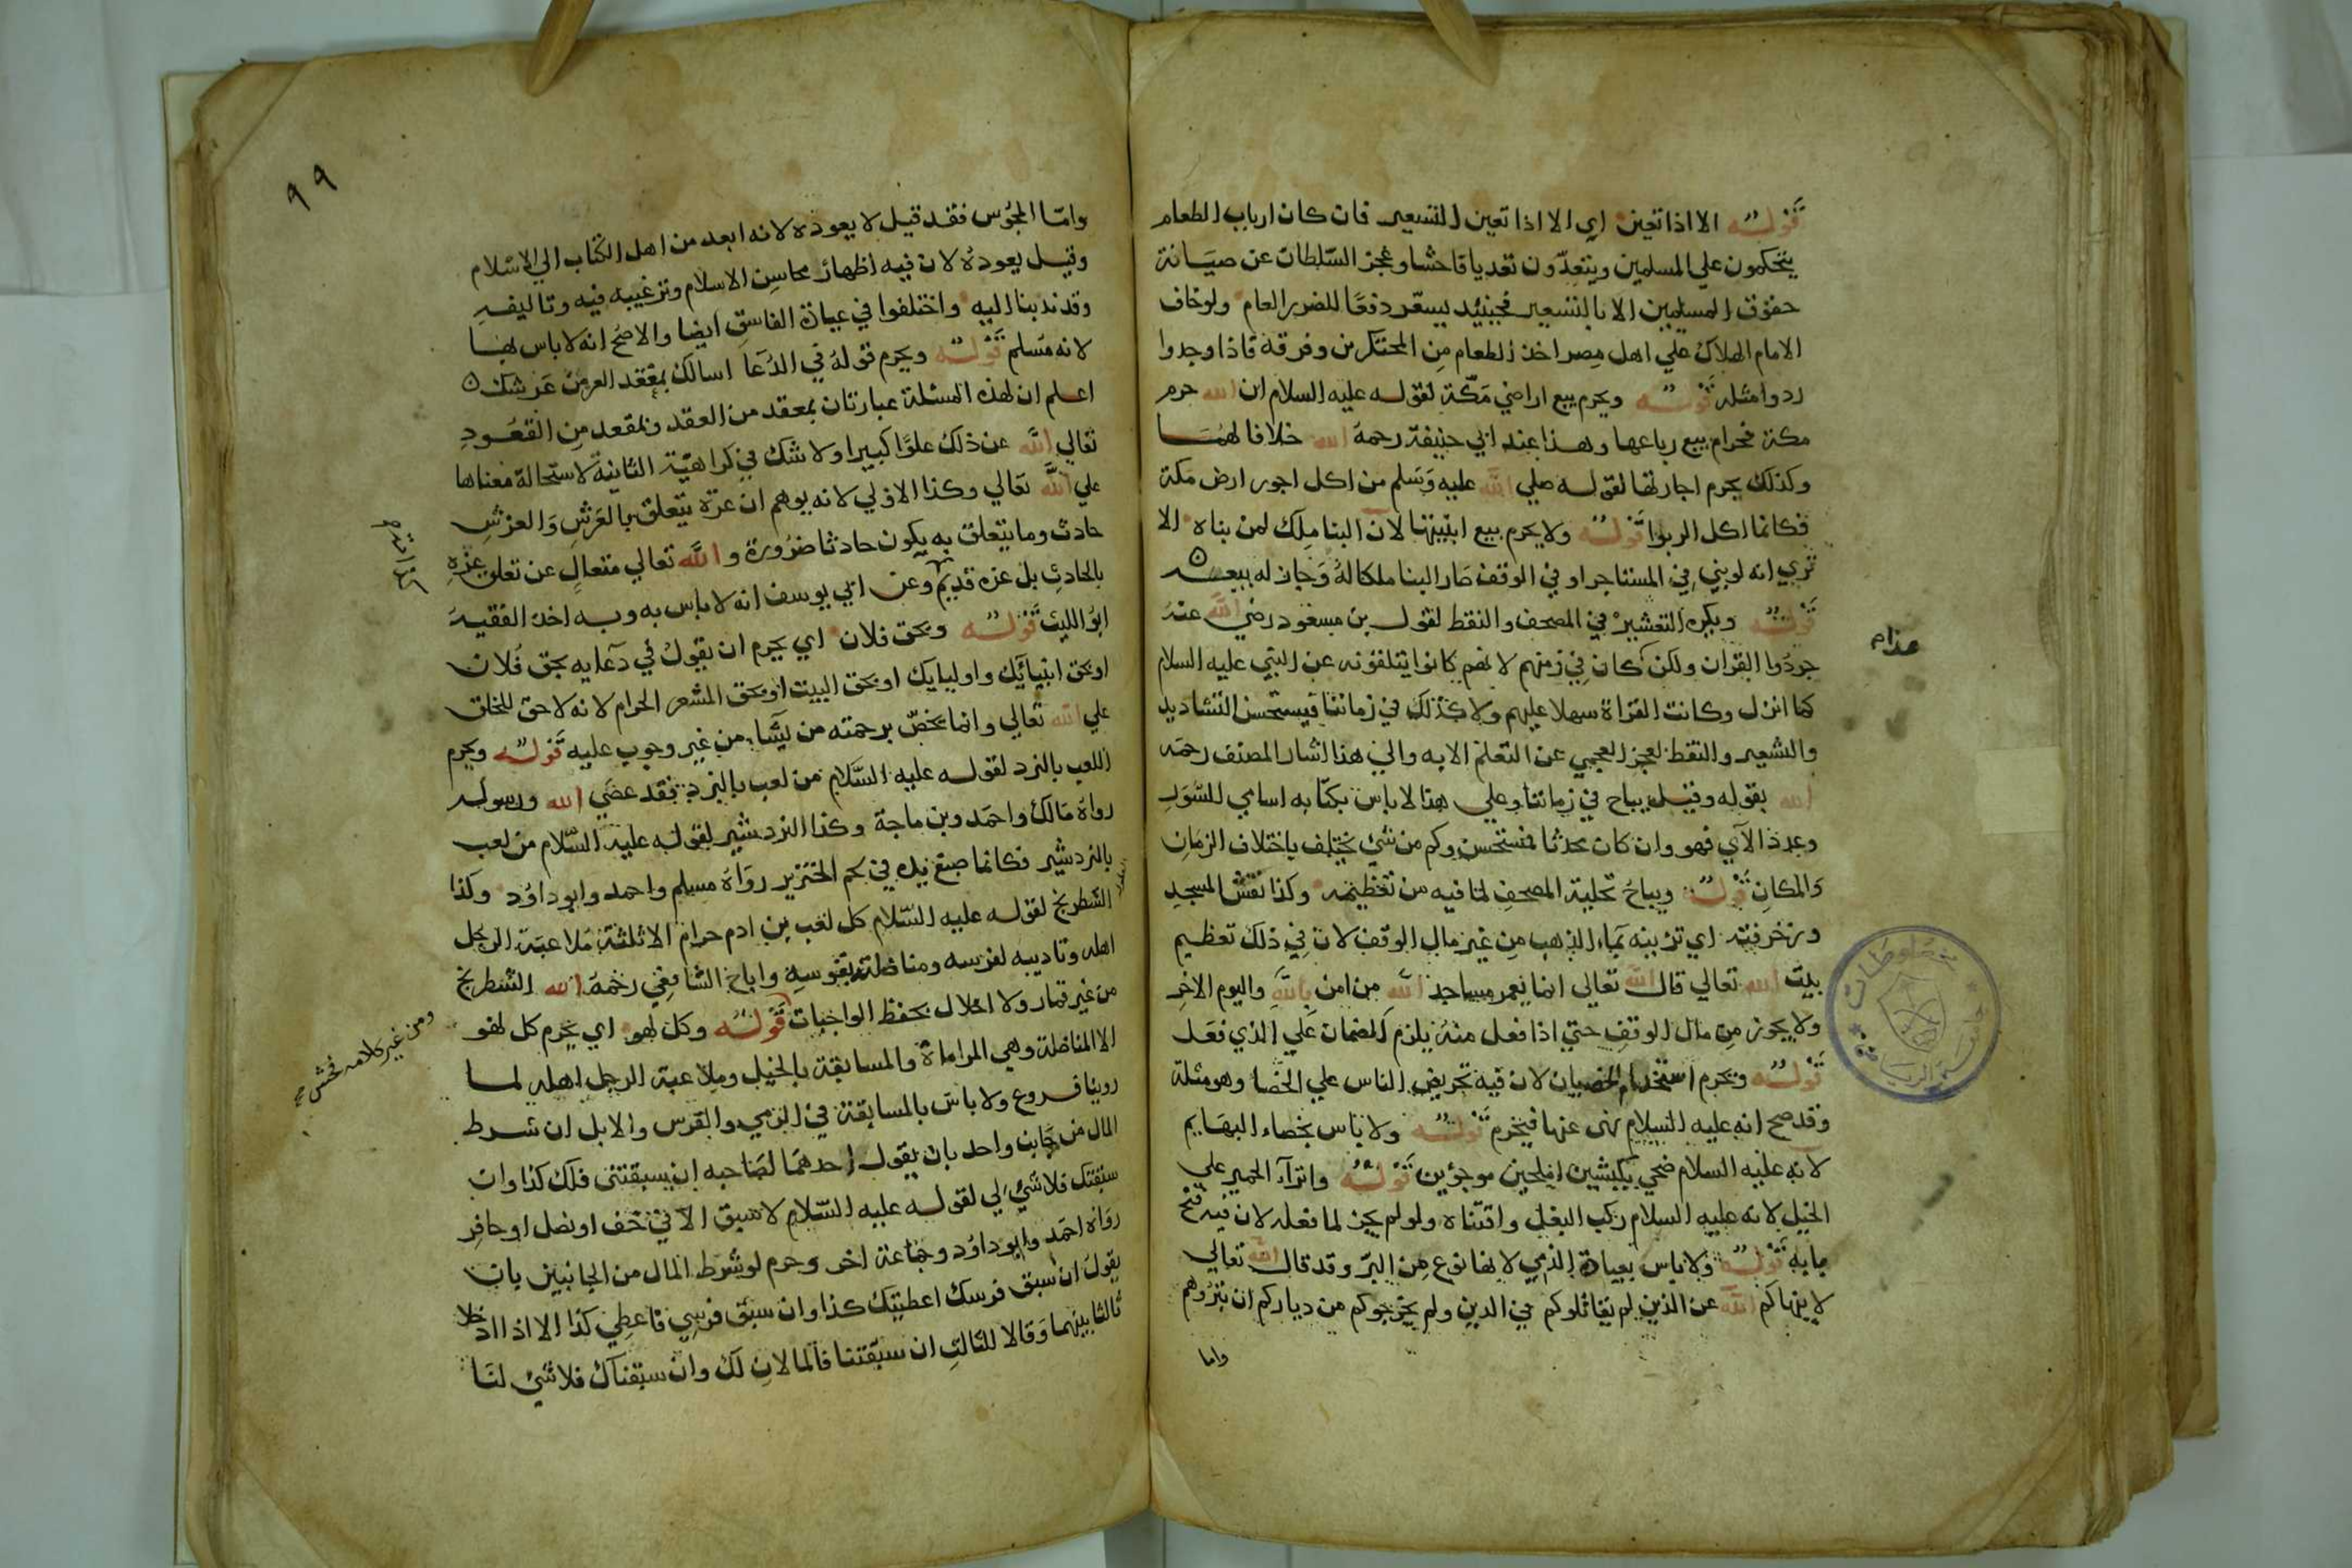 قوله الا اذا تعين اي الا اذا تعين التسعير فان كان ارباب الطعام
يتحكمون علي المسلمين ويتعدّون تعديا فاحشا وعجز السّلطان عن صيَانة
حقوق المسلمين الا بالتسعير فحينئذ يسعّر دفعًا للضرر العام ولو خاف
الامام الهلاك علي اهل مصر اخذ الطعام مِن المحتكرين وفرقه فاذا وجدوا
ردوا مثله قوله ويحرم بيع اراضي مَكّة لقوله عليه السلام ان الله حرم
مكة فحرام بيع رباعها وهذا عند ابي حنيفة رحمهُ الله خلافا لهُمَا
وكذلك يحرم اجارتها لقوله صلي الله عليه وَسَلم من اكل اجور ارض مكة
فكانما اكل الربوا قوله ولا يحرم بيع ابنيتها لان البنا ملِك لمن بناه الا
تري انه لو بني في المستاجر او في الوقف صَار البنا ملكا لهُ وَجاز له بيعه
قوله ويكره التعشير في المصحف والنقط لقول بن مسعود رضي الله عنهُ
جردُوا القران ولكن كان في زمنهم لانهم كانوا يتلقونه عن النبي عليه السلام
كما انزل وكانت القراة سهلا عليهم ولا كذلك في زماننا فيستحسن التشاديد
والشعير والنقط لعجز العجمي عن التعلم الا به والي هذا اشار المصنف رحمه
الله بقوله وقيل يباح في زماننا وعلي هذا لا باس بكتابه اسامي للسّور
وعدد الآي فهو وان كان محدثا فمستحسن وكم من شي يختلف باختلاف الزمَانِ
وَالمكانِ قوله ويباحُ تحلية المصحفِ لما فيه من تعظيمه وكذا نقش المسجدِ
وزخرفته اي تزيينه بمَاء الذهب مِن غير مال الوقف لان في ذلك تعظيم
بيت الله تعالي قال الله تعالي انما يعمر مساجد الله من امن بالله واليوم الاخِر
ولا يجوز مِن مال الوقفِ حتي اذا فعل منهُ يلزم الضمان عَلي الذي فعَل
قوله ويحرم استخدام الخصيان لان فيه تحريض الناس علي الخصا وهو مثلة
وقد صح انه عليه السلام نهى عنها فيحرم قوله ولا باس بخصاء البهَايم
لانه عليه السلام ضحي بكبشين املحين موجؤين قوله وانزآء الحمير علي
الخيل لانه عليه السلام ركب البغل واقتناه ولو لم يجز لما فعله لان فيه فتح
بابه قوله ولا باس بعيادة الذمي لانها نوع مِن البرّ وقد قال الله تعالي
لا ينهاكم الله عن الذين لم يقاتلوكم في الدين ولم يخرجوكم من دياركم ان تبرُوهم
واما
٩٩
وامّا المجُوس فقد قيل لا يعوده لانه ابعد من اهل الكتاب الي الاسْلام
وقيل يعودهُ لان فيه اظهار محاسِن الاسلام وترغيبه فيه وتاليفه
وقد ندبنا اليه واختلفوا في عيادة الفاسق ايضا والاصح انه لا باس بها
لانه مُسلم قوله ويحرم قوله في الدُعَا اسالك بمعقد العز من عَرشك
اعلم ان لهذه المسئلة عبارتان بمعقد من العقد وبمقعد مِن القعُود
تعالي الله عن ذلك علوًّا كبيرا ولا شك في كراهيّة الثانية لاستحالة معناها
علي الله تعالي وكذا الاولي لانه يوهم ان عزه يتعلق بالعَرشِ وَالعرشِ
حادث وما يتعلق به يكون حادثا ضرُورة والله تعالي متعالٍ عن تعلق عزه
بالحادثِ بل عزه قديم وعن ابي يوسف انه لا باس به وبه اخذ الفقيهَ
ابوُ الليث قوله وبحق فلان اي يحرم ان يقولُ في دعايه بحق فُلان
او بحق انبيائك واوليايك او بحق البيت او بحق المشعر الحرام لانه لا حق للخلق
علي الله تعالي وانما يخصّ برحمته من يشَاء من غير وجوب عليه قوله ويحرم
اللعب بالنرد لقوله عليه السَّلام من لعب بالنرد فقد عصَي الله ورسوله
رواهُ مَالك واحمَد وبن ماجة وكذا النردشير لقوله عليهِ السّلام من لعب
بالنردشير فكانما صبغ يده في لحم الخنزير روَاهُ مسلم واحمد وابو داوُد وكذا
الشطرنج لقوله عليه السّلام كل لعب بن ادم حرام الا ثلثة مُلاعبَة الرجل
اهله وتاديبه لفرسه ومناضلته بقوسِهِ واباح الشافِعي رحمهَ الله الشطرنج
من غير قمار ولا اخلال بحفظ الواجبات قوله وكل لهو اي يحرم كل لهو
الا المناضلة وهي المراماة والمسابقة بالخيل وملاعبة الرجل اهله لما
روينا فروع ولا باسَ بالمسابقة في الرمي والفرس والابل ان شرط
المال من جَانب واحد بان يقول احدهمَا لصَاحبه ان سبقتنى فلك كذا وان
سبقتك فلا شيَ لي لقوله عليه السّلام لا سبق الا في خف او نصل او حافِر
روَاه احمَد وابو داوُد وجَماعة اخر وحرم لو شرَط المال من الجانبين بان
يقولَ ان سبق فرسك اعطيتك كذا وان سبَق فرسِي فاعطِي كذا الا اذا ادخلا
ثالثا بينهما وَقالا للثالثِ ان سبَقتنا فالما لان لك وان سبقناك فلا شي لنَا
ومن غير كلامه فحش